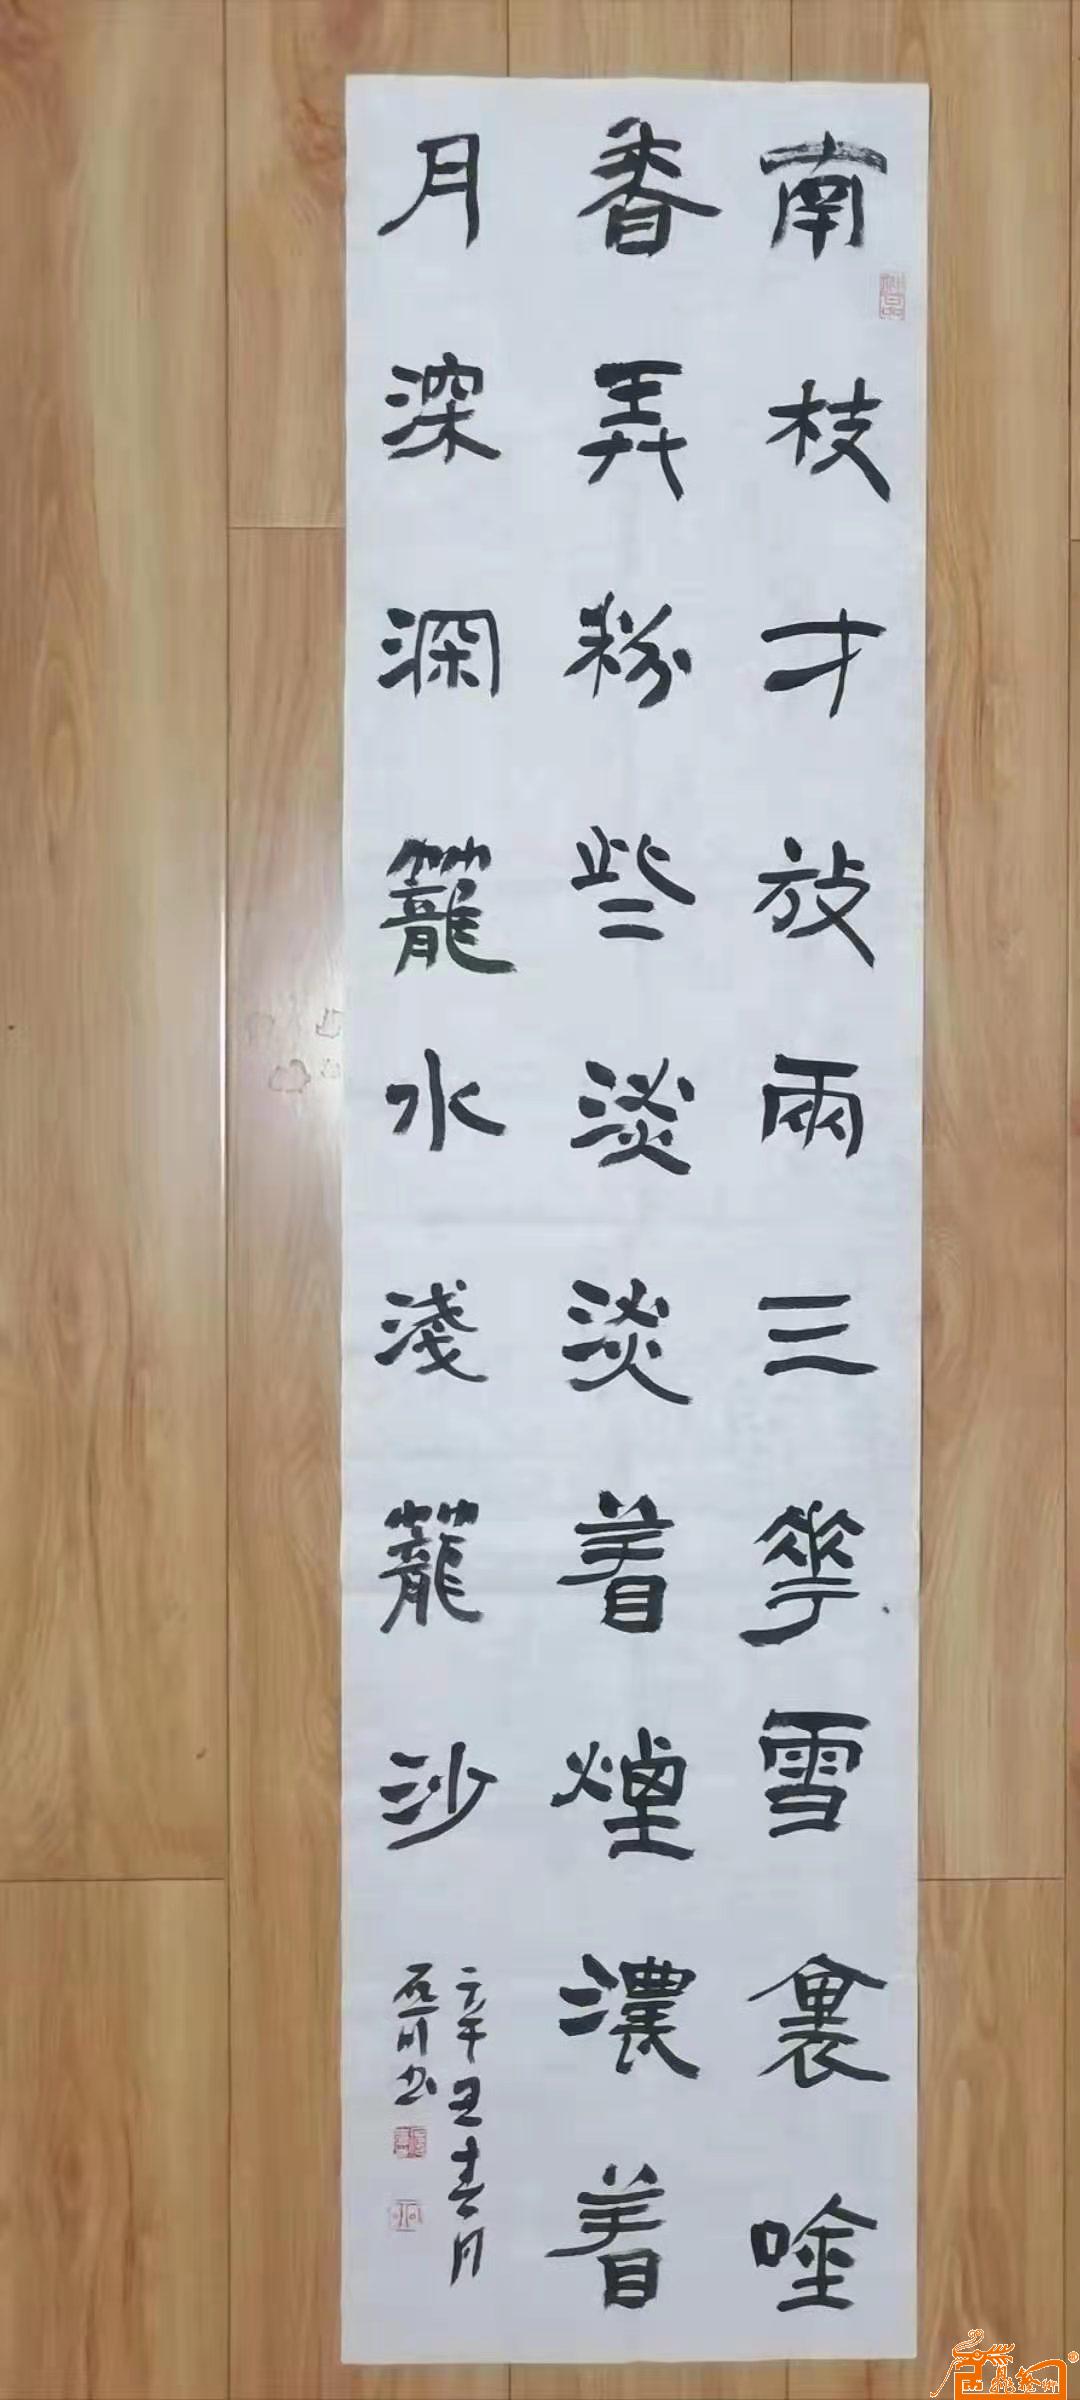 南枝才放兩三華雪裏唫
香弄粉些淡淡着煙濃着
月深深籠水淺籠沙
辛丑春月
石川书